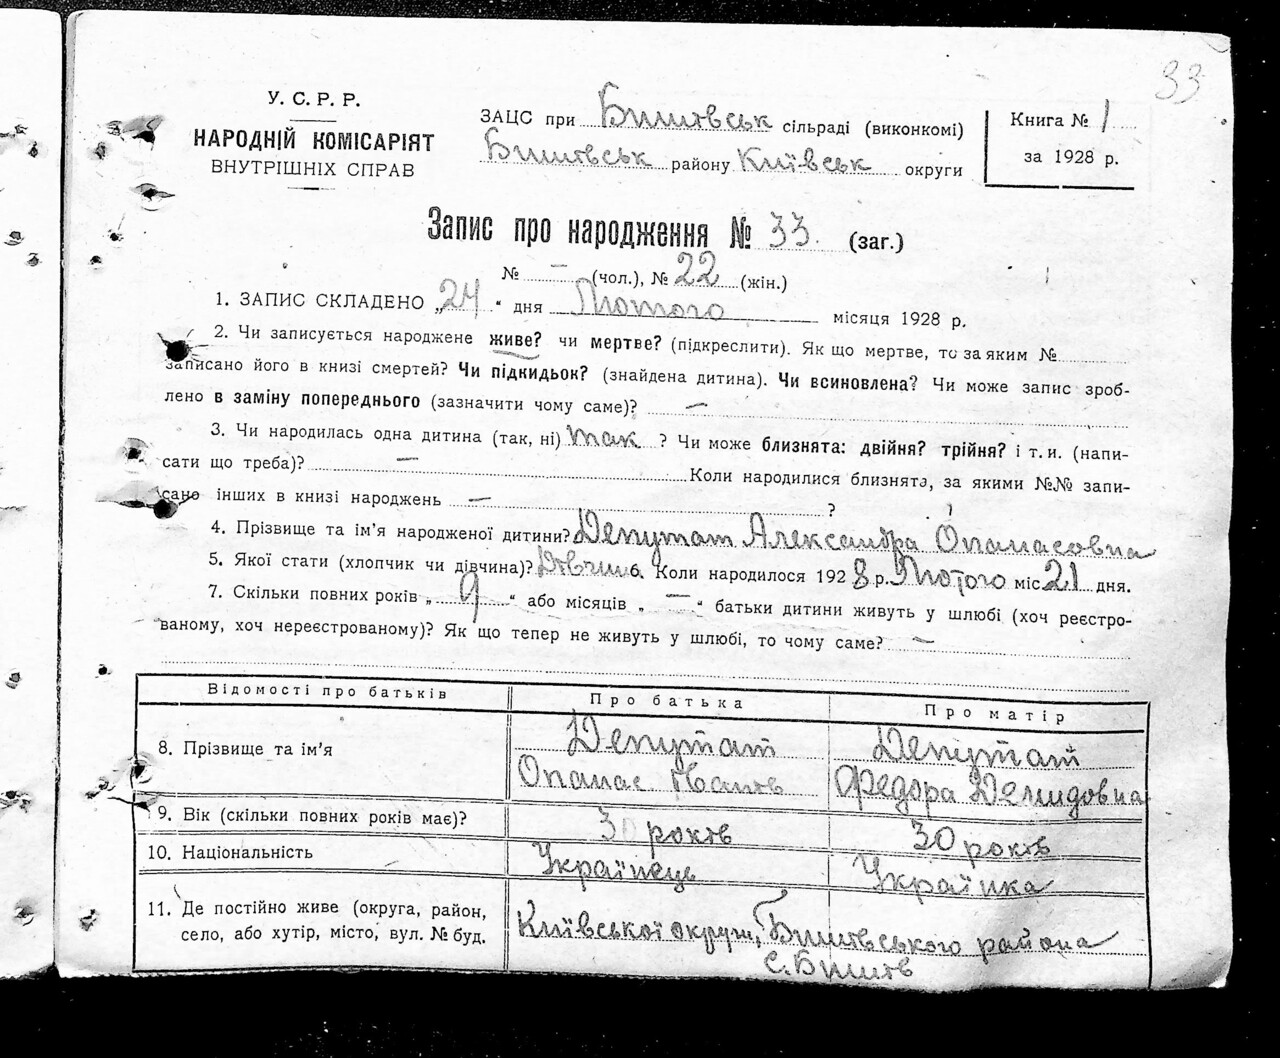 33
У. С. Р. Р.
НАРОДНІЙ КОМІСАРІЯТ
ВНУТРІШНІХ СПРАВ
ЗАЦС при Бишівськ сільраді (виконкомі)
Бишівськ району Київськ округи
Книга № 1
за 1928 р.
Запис про народження № 33 (заг.)
№ — (чол.), № 22 (жін.)
1. ЗАПИС СКЛАДЕНО „24“ дня Лютого місяця 1928 р.
2. Чи записується народжене живе? чи мертве? (підкреслити). Як що мертве, то за яким №
записано його в книзі смертей? Чи підкидьок? (знайдена дитина). Чи всиновлена? Чи може запис зроб-
лено в заміну попереднього (зазначити чому саме)? —
3. Чи народилась одна дитина (так, ні) так ? Чи може близнята: двійня? трійня? і т. и. (напи-
сати що треба)? — Коли народилися близнята, за якими №№ запи-
сано інших в книзі народжень — ?
4. Прізвище та ім'я народженої дитини? Депутат Александра Опанасовна
5. Якої стати (хлопчик чи дівчина)? Дівчин 6. Коли народилося 1928 р. Лютого міс 21 дня.
7. Скільки повних років „ 9 “ або місяців „ — “ батьки дитини живуть у шлюбі (хоч реєстро-
ваному, хоч нереєстрованому)? Як що тепер не живуть у шлюбі, то чому саме? —
Відомості про батьків Про батька Про матір
8. Прізвище та ім'я Депутат Опанас Іванів Депутат Федора Демидовна
9. Вік (скільки повних років має)? 30 років 30 років
10. Національність Українець Українка
11. Де постійно живе (округа, район,
село, або хутір, місто, вул. № буд. Київської округи, Бишівського района
с. Бишів